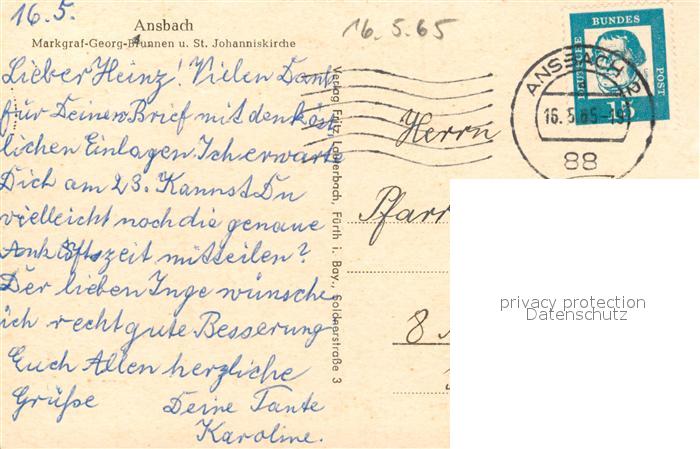 16.5.
Ansbach
Markgraf-Georg-Brunnen u. St. Johanniskirche
16.5.65
Lieber Heinz! Vielen Dank
für Deinen Brief mit den köst
lichen Einlagen. Ich erwarte
Dich am 23. Kannst Du
vielleicht noch die genaue
Ankunftszeit mitteilen?
Der lieben Inge wünsche
ich recht gute Besserung
Euch Allen herzliche
Grüße Deine Tante
Karoline.
Verlag Fritz Lauterbach, Fürth i. Bay., Soldnerstraße 3
DEUTSCHE BUNDES POST
15
ANSBACH 2
16.5.65-19
88
Herrn
Pfarr
8
privacy protection
Datenschutz